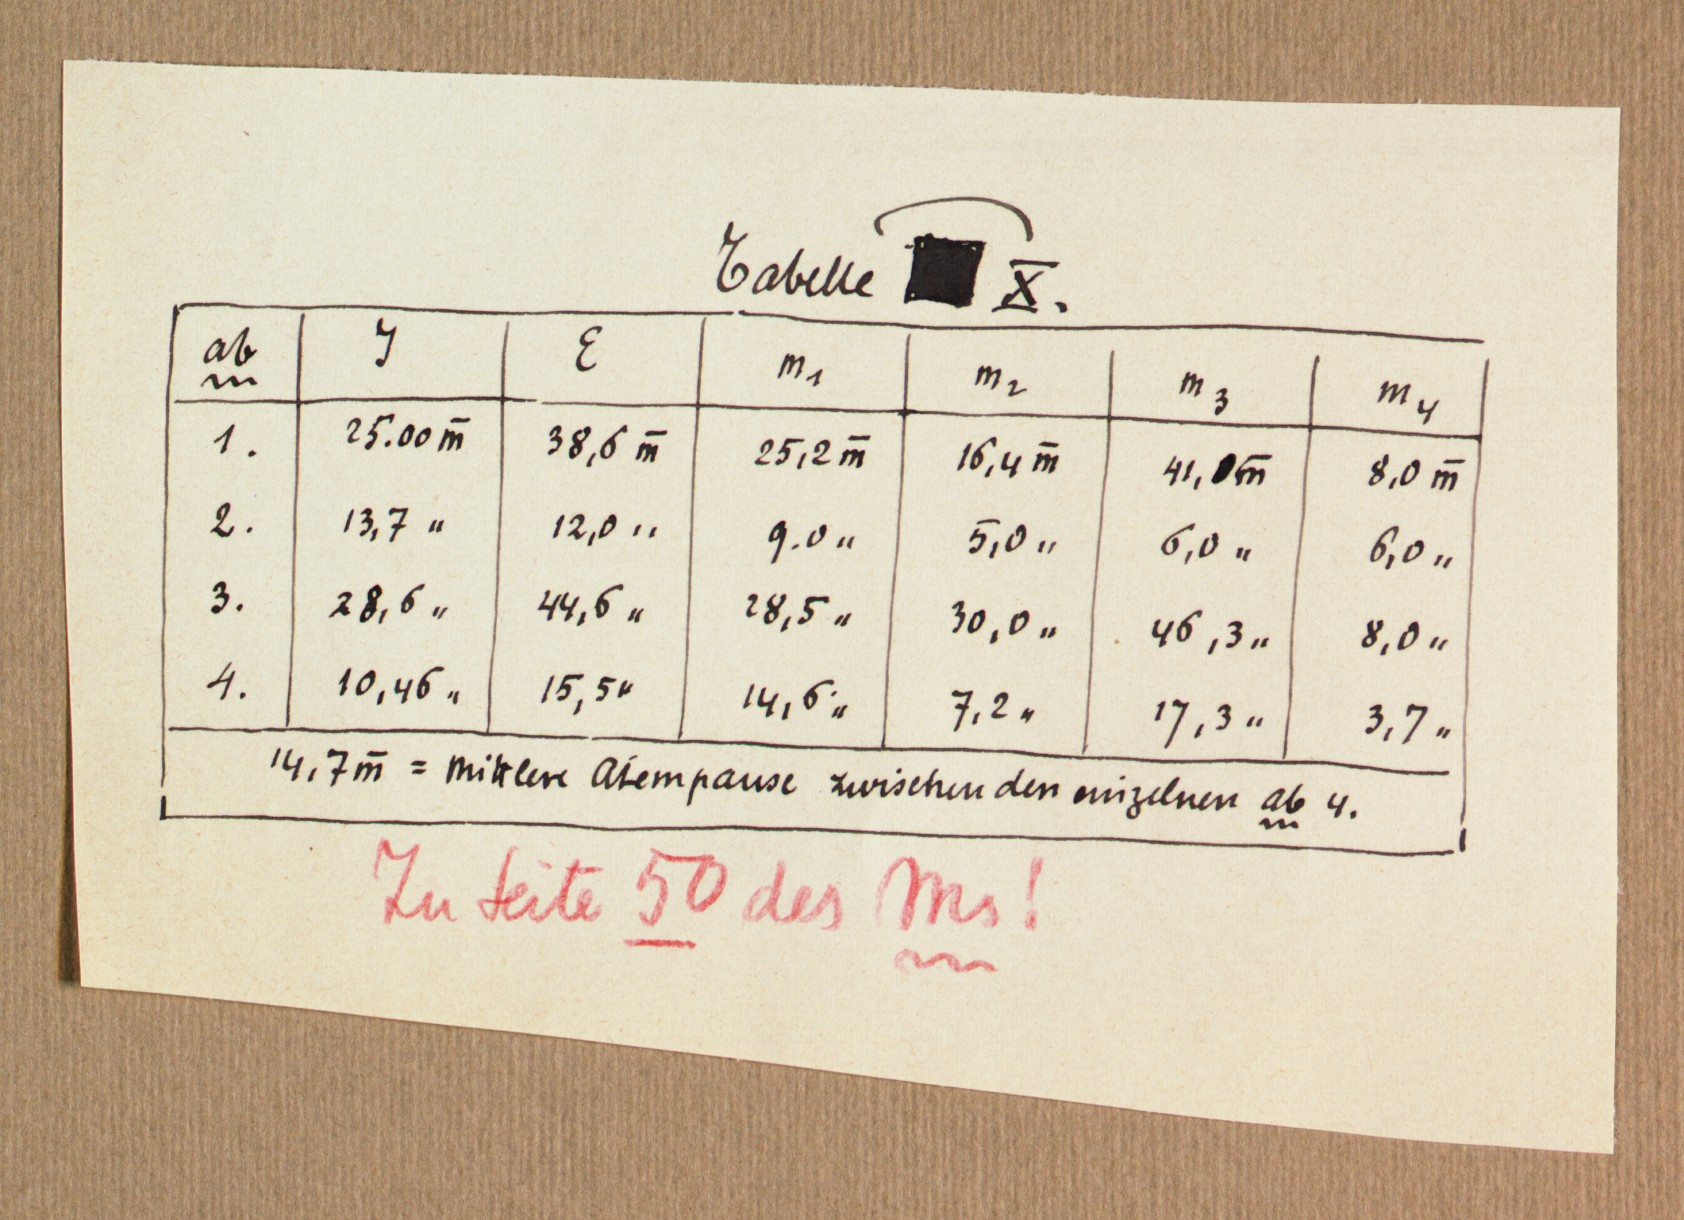 Tabelle X.
ab J E m1 m2 m3 m4
1. 25.00 m̅ 38,6 m̅ 25,2 m̅ 16,4 m̅ 41,0 m̅ 8,0 m̅
2. 13,7 " 12,0 " 9.0 " 5,0 " 6,0 " 6,0 "
3. 28,6 " 44,6 " 28,5 " 30,0 " 46,3 " 8,0 "
4. 10,46 " 15,5 " 14,6 " 7,2 " 17,3 " 3,7 "
14,7 m̅ = mittlere Atempause zwischen den einzelnen ab 4.
Zu Seite 50 des Ms!